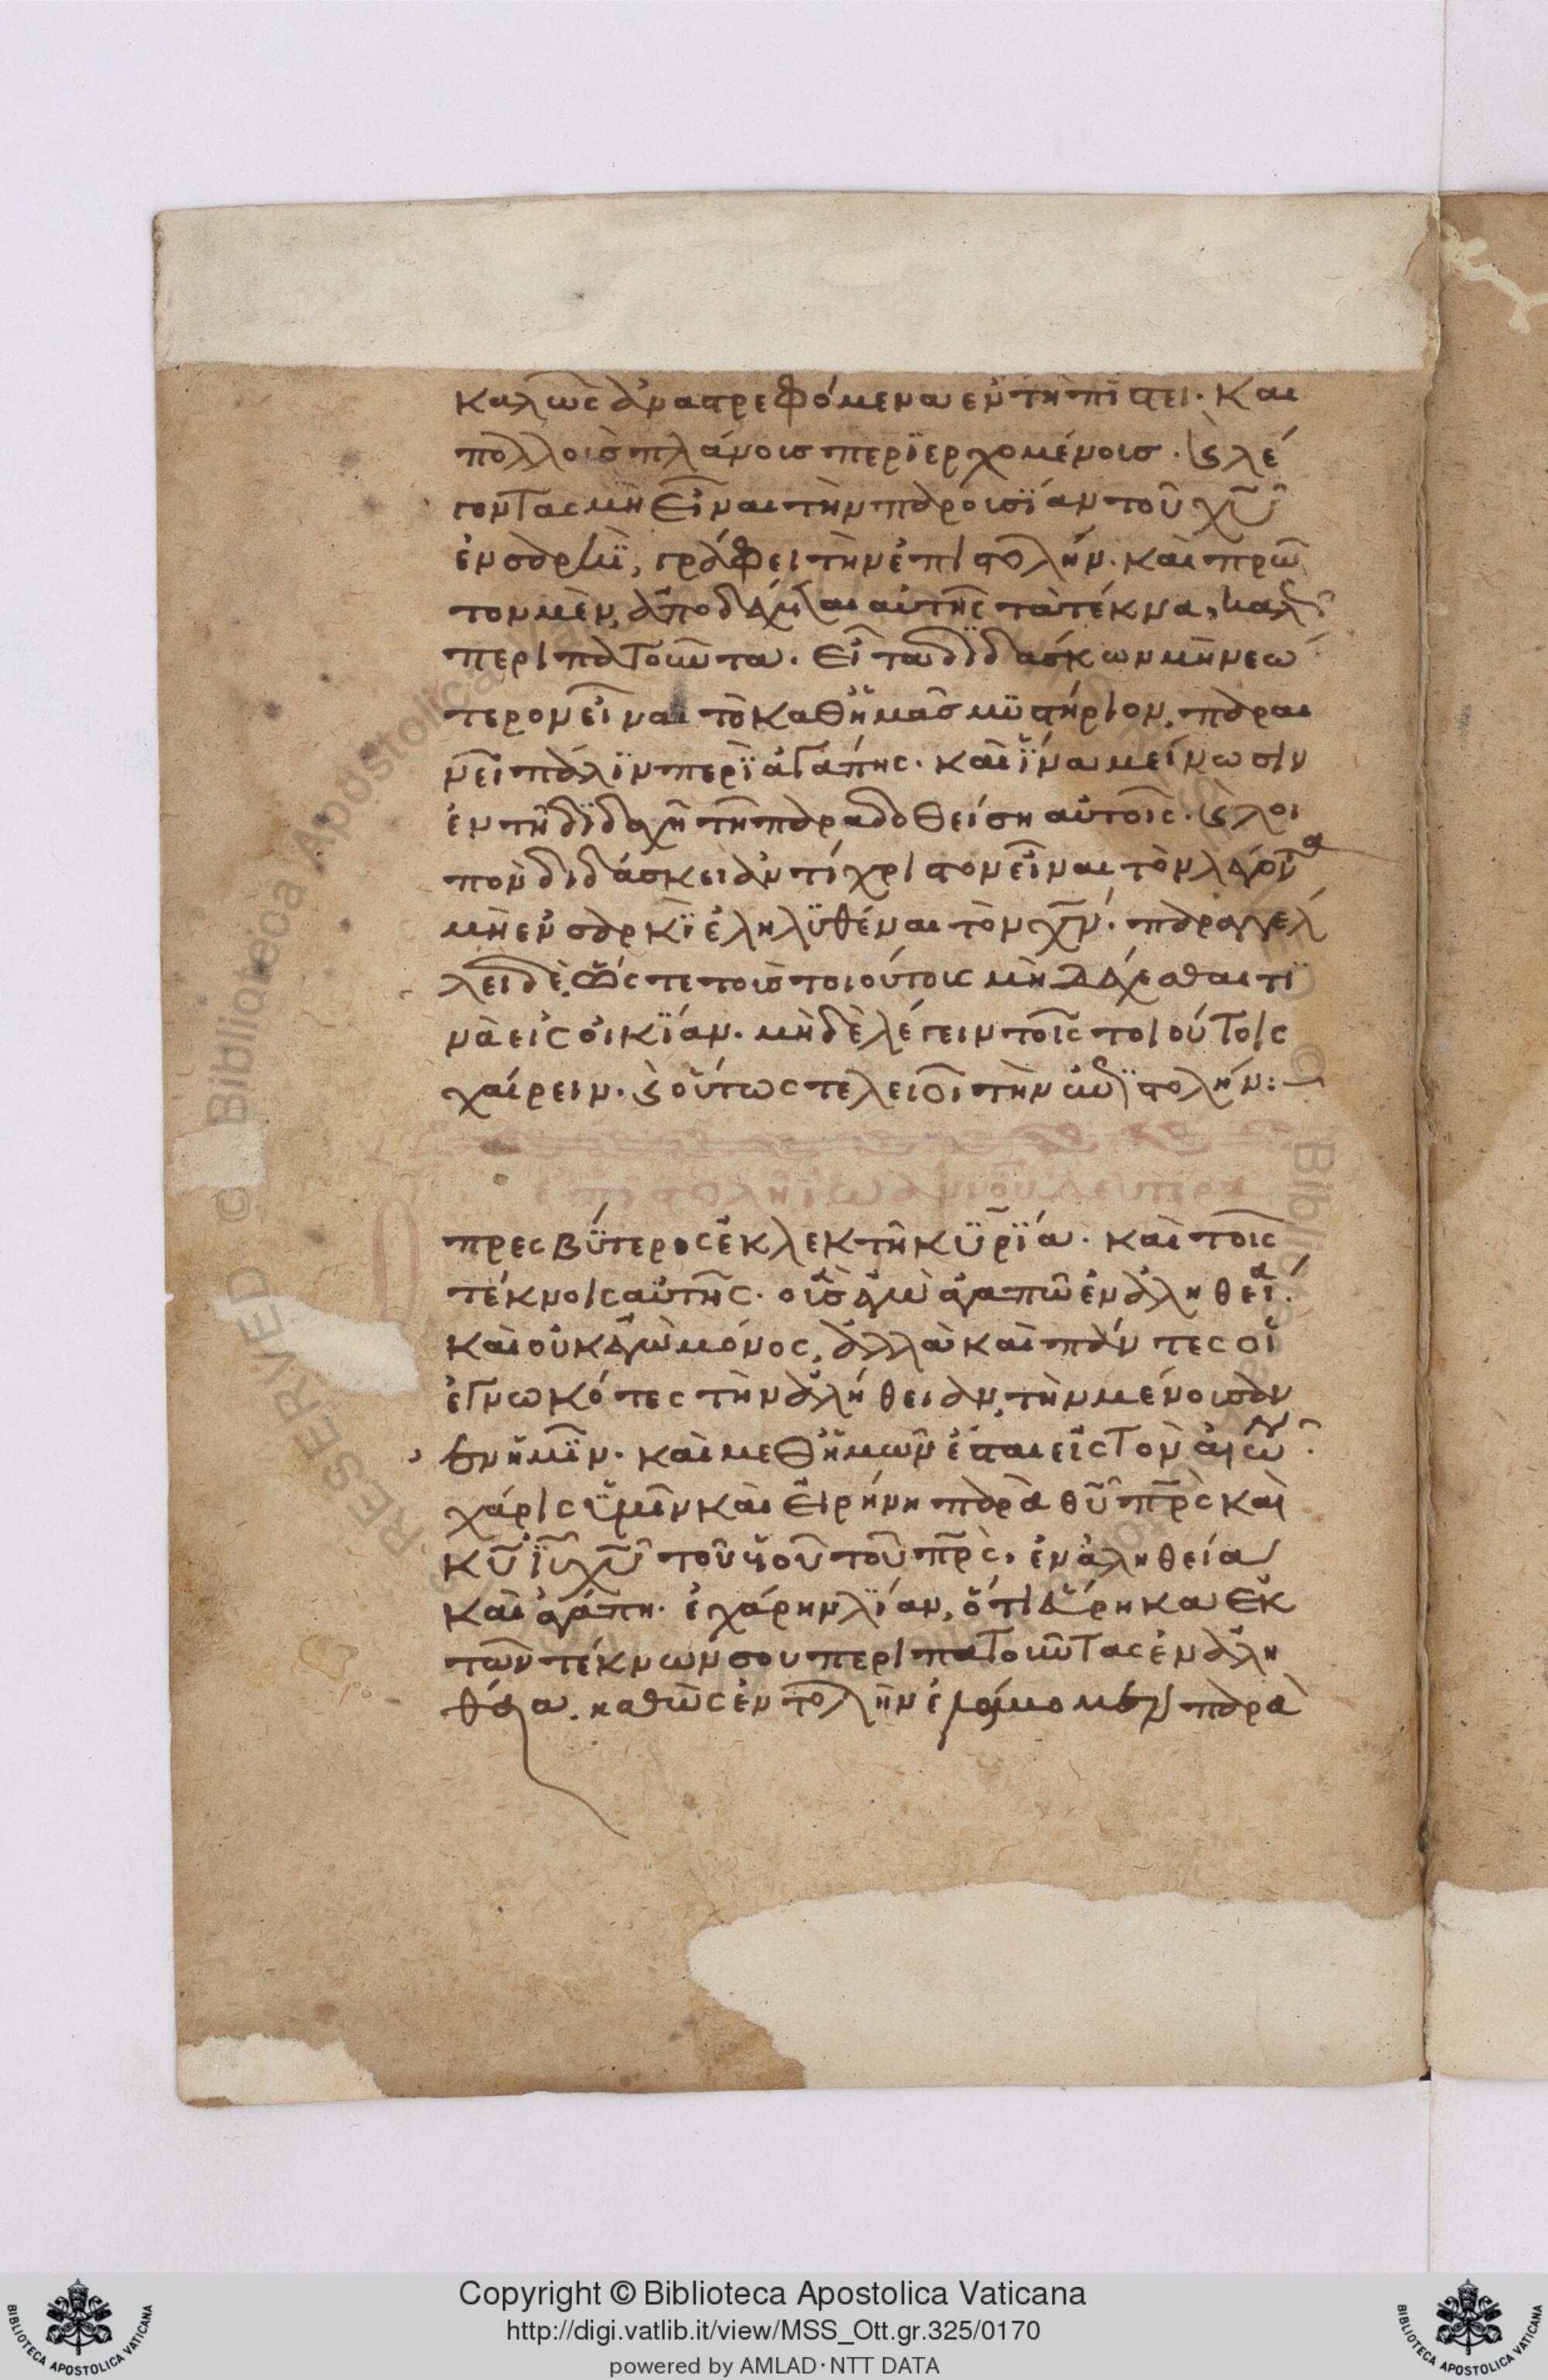 καλῶς ἀναστρεφόμενα ἐν τῆ πίστει. και
πολλοὶς πλάνοις περϊερχομένοις. ϗ λέ
γοντας μὴ εἶναι τὴν παρουσϊάν τοῦ χυ
ἐν σαρκὶ, γράφει τὴν ἐπιστολήν. καὶ πρῶ
τον μὲν, ἀποδέχεται αὐτῆς τὰ τέκνα, καλῶ
περιπατοῦντα. εἶτα διδάσκων μὴ νεώ
τερον εἶναι τὸ καθ ἡμᾶς μυστήριον, παραι
νεῖ πάλϊν περὶ ἀγάπης. καὶ ἵνα μείνωσιν
ἐν τῆ διδαχῆ τῆ παραδοθείση αὐτοῖς. ϗ λοι
πὸν διδάσκει ἀντίχριστον εἶναι τὸν λέγοντα
μὴ ἐν σαρκὶ ἐληλϋθέναι τὸν χν. παραγγέλ
λει δὲ, ὥστε τοὶς τοιούτοις μὴ δέχεσθαι τι
νὰ εἰς οἰκϊάν. μὴδὲ λέγειν τοῖς τοιούτοις
χαίρειν. ϗ οὕτως τελειοῖ τὴν ἐπιστολήν:
ἐπιστολὴ ἰωάννου δευτέρα
πρεσβύτερος ἐκλεκτῆ κϋρϊά. καὶ τοῖς
τέκνοις αὐτῆς. οἷς ἐγὼ ἀγαπῶ ἐν ἀληθεία.
καὶ οὐκ ἐγὼ μόνος, ἀλλὰ καὶ πάντες οἱ
ἐγνωκότες τὴν ἀλήθειαν, τὴν μένουσαν
ἐν ἡμῖν. καὶ μεθ ἡμῶν ἔσται εἰς τὸν αἰῶν
χάρις ὑμῖν καὶ εἰρήνη παρὰ θυ πρς καὶ
κυ ἰυ χυ τοῦ υἱοῦ τοῦ πρς, ἐν ἀληθεία
καὶ ἀγάπη. ἐχάρην λϊάν, ὅτι εὕρηκα ἐκ
τῶν τέκνων σου περιπατοῦντας ἐν ἀλη
θεία. καθὼς ἐντολὴν ἐλάβομεν παρὰ
Copyright © Biblioteca Apostolica Vaticana
http://digi.vatlib.it/view/MSS_Ott.gr.325/0170
powered by AMLAD·NTT DATA